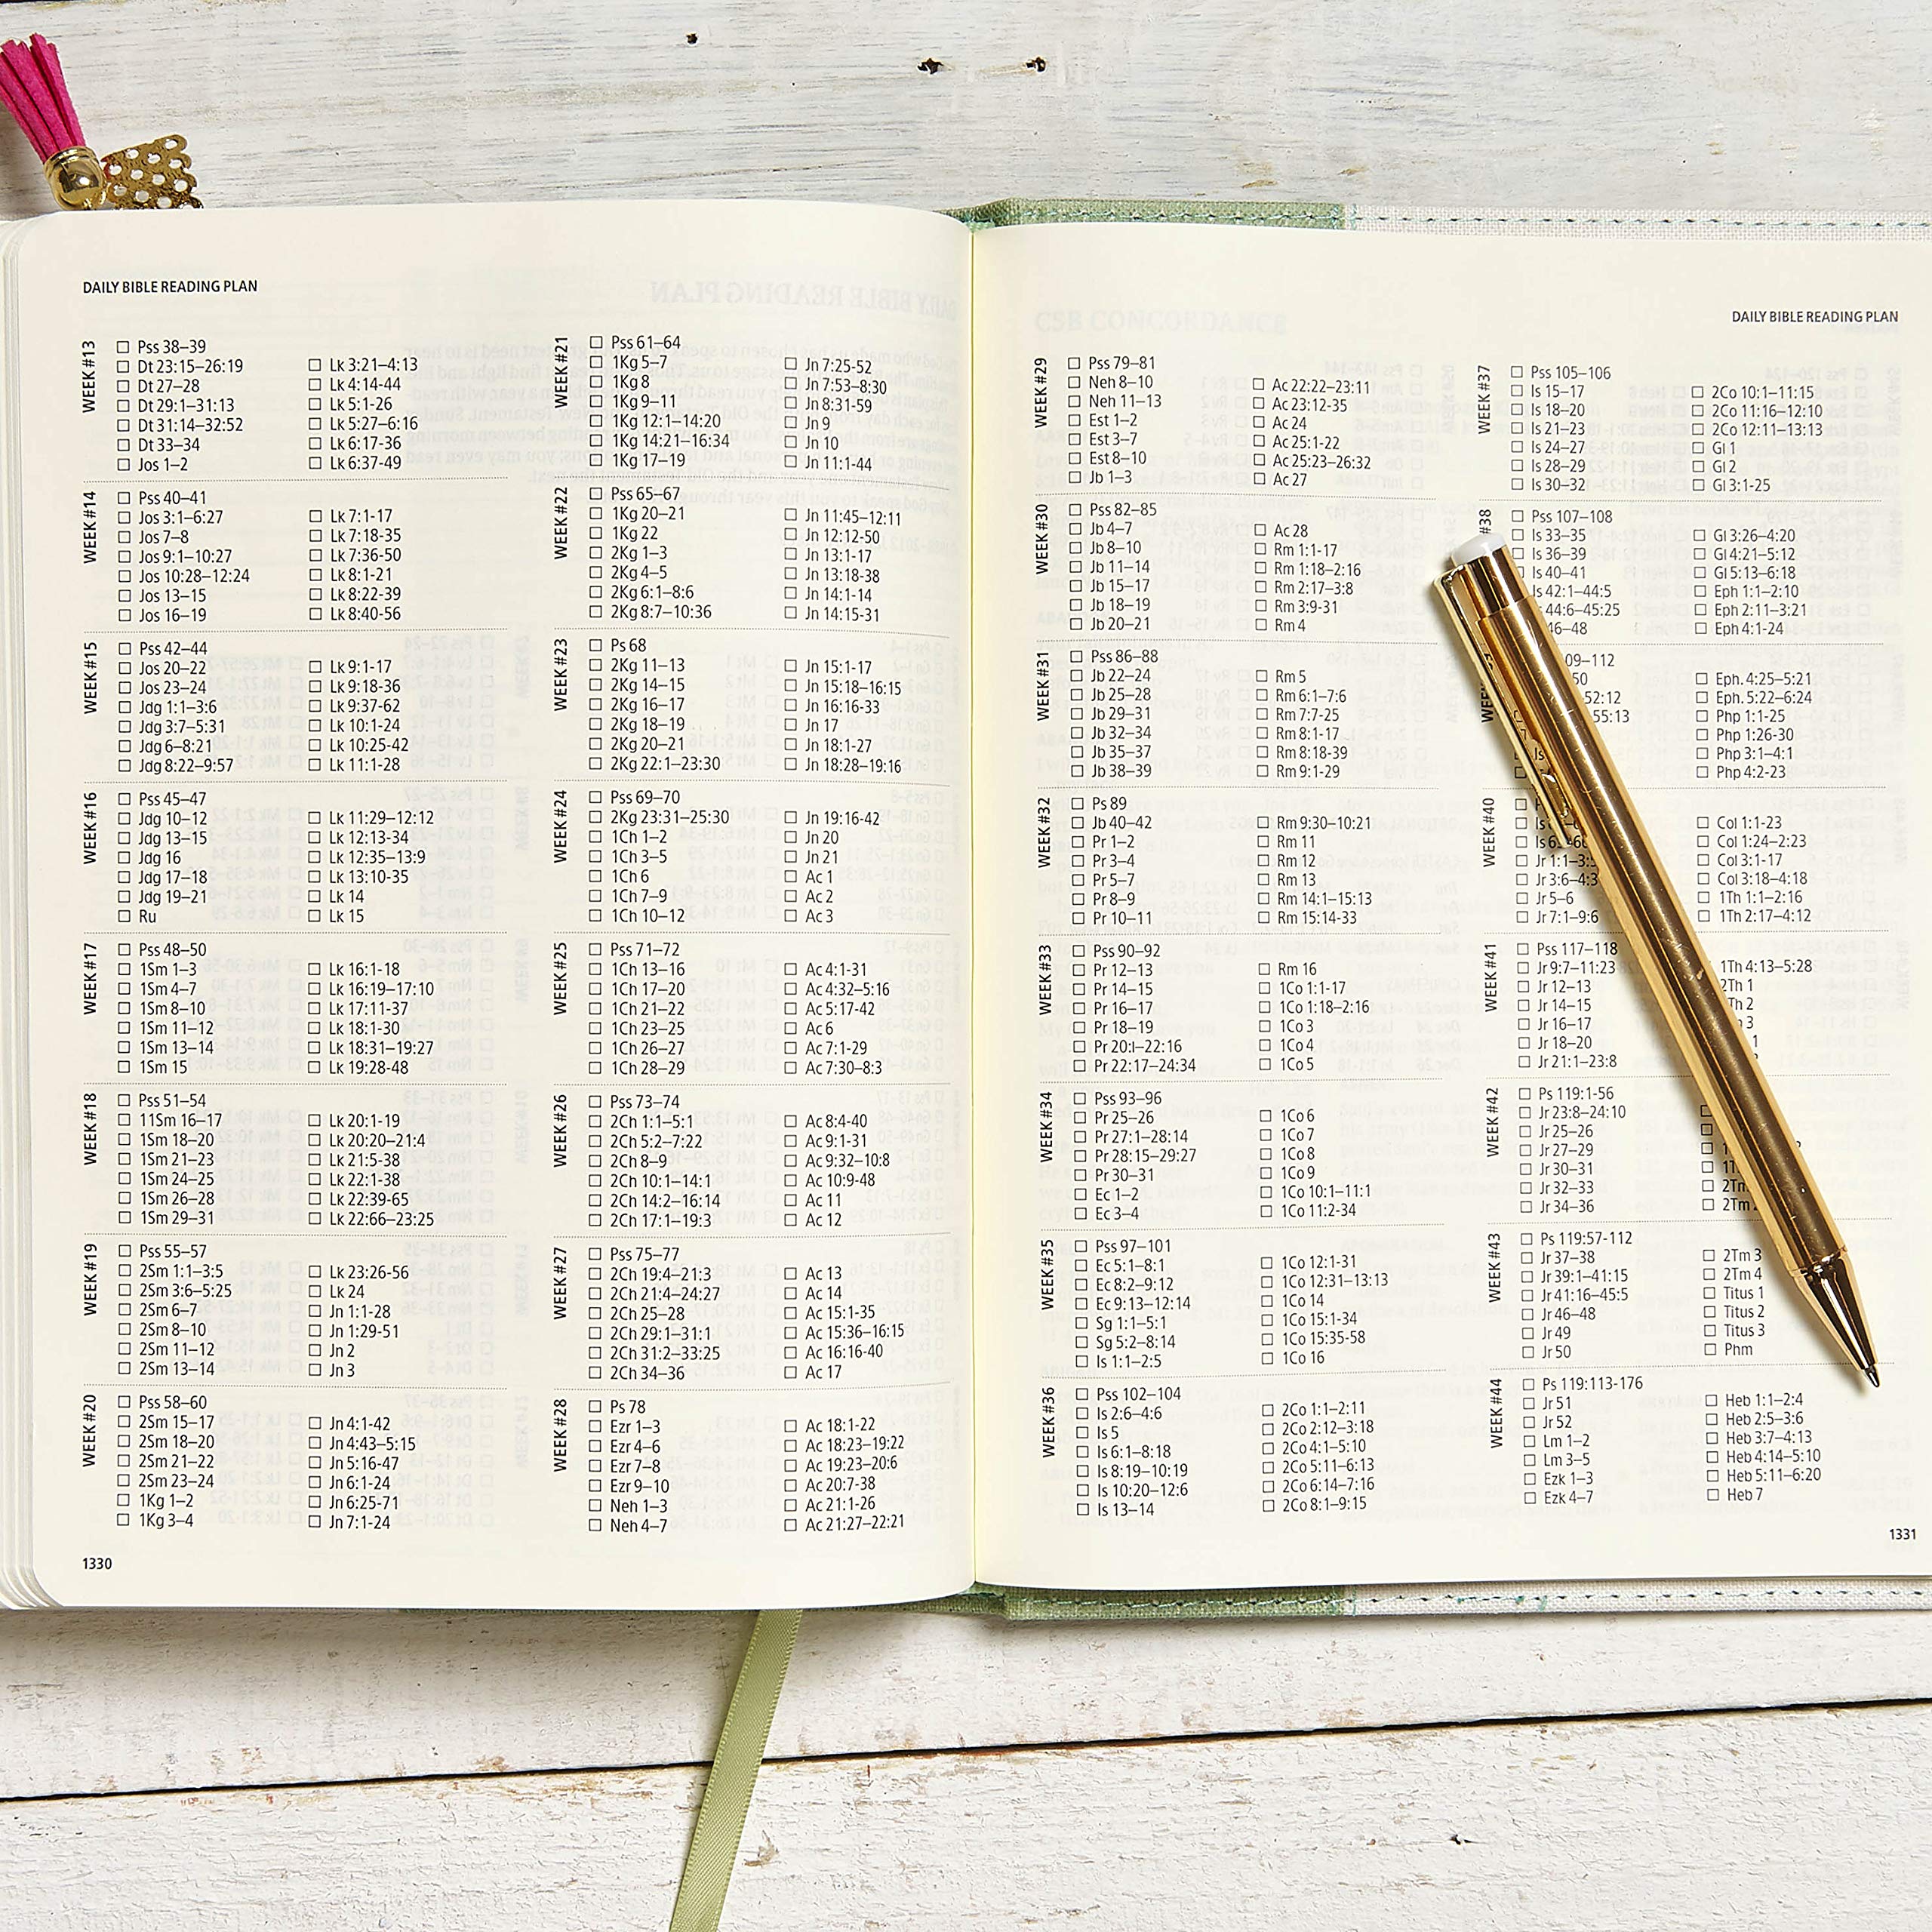 DAILY BIBLE READING PLAN
WEEK #13
Pss 38–39
Dt 23:15–26:19 Lk 3:21–4:13
Dt 27–28 Lk 4:14-44
Dt 29:1–31:13 Lk 5:1-26
Dt 31:14–32:52 Lk 5:27–6:16
Dt 33–34 Lk 6:17-36
Jos 1–2 Lk 6:37-49
WEEK #14
Pss 40–41
Jos 3:1–6:27 Lk 7:1-17
Jos 7–8 Lk 7:18-35
Jos 9:1–10:27 Lk 7:36-50
Jos 10:28–12:24 Lk 8:1-21
Jos 13–15 Lk 8:22-39
Jos 16–19 Lk 8:40-56
WEEK #15
Pss 42–44
Jos 20–22 Lk 9:1-17
Jos 23–24 Lk 9:18-36
Jdg 1:1–3:6 Lk 9:37-62
Jdg 3:7–5:31 Lk 10:1-24
Jdg 6–8:21 Lk 10:25-42
Jdg 8:22–9:57 Lk 11:1-28
WEEK #16
Pss 45–47
Jdg 10–12 Lk 11:29–12:12
Jdg 13–15 Lk 12:13-34
Jdg 16 Lk 12:35–13:9
Jdg 17–18 Lk 13:10-35
Jdg 19–21 Lk 14
Ru Lk 15
WEEK #17
Pss 48–50
1Sm 1–3 Lk 16:1-18
1Sm 4–7 Lk 16:19–17:10
1Sm 8–10 Lk 17:11-37
1Sm 11–12 Lk 18:1-30
1Sm 13–14 Lk 18:31–19:27
1Sm 15 Lk 19:28-48
WEEK #18
Pss 51–54
11Sm 16–17 Lk 20:1-19
1Sm 18–20 Lk 20:20–21:4
1Sm 21–23 Lk 21:5-38
1Sm 24–25 Lk 22:1-38
1Sm 26–28 Lk 22:39-65
1Sm 29–31 Lk 22:66–23:25
WEEK #19
Pss 55–57
2Sm 1:1–3:5 Lk 23:26-56
2Sm 3:6–5:25 Lk 24
2Sm 6–7 Jn 1:1-28
2Sm 8–10 Jn 1:29-51
2Sm 11–12 Jn 2
2Sm 13–14 Jn 3
WEEK #20
Pss 58–60
2Sm 15–17 Jn 4:1-42
2Sm 18–20 Jn 4:43–5:15
2Sm 21–22 Jn 5:16-47
2Sm 23–24 Jn 6:1-24
1Kg 1–2 Jn 6:25-71
1Kg 3–4 Jn 7:1-24
WEEK #21
Pss 61–64
1Kg 5–7 Jn 7:25-52
1Kg 8 Jn 7:53–8:30
1Kg 9–11 Jn 8:31-59
1Kg 12:1–14:20 Jn 9
1Kg 14:21–16:34 Jn 10
1Kg 17–19 Jn 11:1-44
WEEK #22
Pss 65–67
1Kg 20–21 Jn 11:45–12:11
1Kg 22 Jn 12:12-50
2Kg 1–3 Jn 13:1-17
2Kg 4–5 Jn 13:18-38
2Kg 6:1–8:6 Jn 14:1-14
2Kg 8:7–10:36 Jn 14:15-31
WEEK #23
Ps 68
2Kg 11–13 Jn 15:1-17
2Kg 14–15 Jn 15:18–16:15
2Kg 16–17 Jn 16:16-33
2Kg 18–19 Jn 17
2Kg 20–21 Jn 18:1-27
2Kg 22:1–23:30 Jn 18:28–19:16
WEEK #24
Pss 69–70
2Kg 23:31–25:30 Jn 19:16-42
1Ch 1–2 Jn 20
1Ch 3–5 Jn 21
1Ch 6 Ac 1
1Ch 7–9 Ac 2
1Ch 10–12 Ac 3
WEEK #25
Pss 71–72
1Ch 13–16 Ac 4:1-31
1Ch 17–20 Ac 4:32–5:16
1Ch 21–22 Ac 5:17-42
1Ch 23–25 Ac 6
1Ch 26–27 Ac 7:1-29
1Ch 28–29 Ac 7:30–8:3
WEEK #26
Pss 73–74
2Ch 1:1–5:1 Ac 8:4-40
2Ch 5:2–7:22 Ac 9:1-31
2Ch 8–9 Ac 9:32–10:8
2Ch 10:1–14:1 Ac 10:9-48
2Ch 14:2–16:14 Ac 11
2Ch 17:1–19:3 Ac 12
WEEK #27
Pss 75–77
2Ch 19:4–21:3 Ac 13
2Ch 21:4–24:27 Ac 14
2Ch 25–28 Ac 15:1-35
2Ch 29:1–31:1 Ac 15:36–16:15
2Ch 31:2–33:25 Ac 16:16-40
2Ch 34–36 Ac 17
WEEK #28
Ps 78
Ezr 1–3 Ac 18:1-22
Ezr 4–6 Ac 18:23–19:22
Ezr 7–8 Ac 19:23–20:6
Ezr 9–10 Ac 20:7-38
Neh 1–3 Ac 21:1-26
Neh 4–7 Ac 21:27–22:21
1330
DAILY BIBLE READING PLAN
WEEK #29
Pss 79–81
Neh 8–10 Ac 22:22–23:11
Neh 11–13 Ac 23:12-35
Est 1–2 Ac 24
Est 3–7 Ac 25:1-22
Est 8–10 Ac 25:23–26:32
Jb 1–3 Ac 27
WEEK #30
Pss 82–85
Jb 4–7 Ac 28
Jb 8–10 Rm 1:1-17
Jb 11–14 Rm 1:18–2:16
Jb 15–17 Rm 2:17–3:8
Jb 18–19 Rm 3:9-31
Jb 20–21 Rm 4
WEEK #31
Pss 86–88
Jb 22–24 Rm 5
Jb 25–28 Rm 6:1–7:6
Jb 29–31 Rm 7:7-25
Jb 32–34 Rm 8:1-17
Jb 35–37 Rm 8:18-39
Jb 38–39 Rm 9:1-29
WEEK #32
Ps 89
Jb 40–42 Rm 9:30–10:21
Pr 1–2 Rm 11
Pr 3–4 Rm 12
Pr 5–7 Rm 13
Pr 8–9 Rm 14:1–15:13
Pr 10–11 Rm 15:14-33
WEEK #33
Pss 90–92
Pr 12–13 Rm 16
Pr 14–15 1Co 1:1-17
Pr 16–17 1Co 1:18–2:16
Pr 18–19 1Co 3
Pr 20:I–22:16 1Co 4
Pr 22:17–24:34 1Co 5
WEEK #34
Pss 93–96
Pr 25–26 1Co 6
Pr 27:1–28:14 1Co 7
Pr 28:15–29:27 1Co 8
Pr 30–31 1Co 9
Ec 1–2 1Co 10:1–11:1
Ec 3–4 1Co 11:2-34
WEEK #35
Pss 97–101
Ec 5:1–8:1 1Co 12:1-31
Ec 8:2–9:12 1Co 12:31–13:13
Ec 9:13–12:14 1Co 14
Sg 1:1–5:1 1Co 15:1-34
Sg 5:2–8:14 1Co 15:35-58
Is 1:1–2:5 1Co 16
WEEK #36
Pss 102–104
Is 2:6–4:6 2Co 1:1–2:11
Is 5 2Co 2:12–3:18
Is 6:1–8:18 2Co 4:1–5:10
Is 8:19–10:19 2Co 5:11–6:13
Is 10:20–12:6 2Co 6:14–7:16
Is 13–14 2Co 8:1–9:15
WEEK #37
Pss 105–106
Is 15–17 2Co 10:1–11:15
Is 18–20 2Co 11:16–12:10
Is 21–23 2Co 12:11–13:13
Is 24–27 Gl 1
Is 28–29 Gl 2
Is 30–32 Gl 3:1-25
#38
Pss 107–108
Is 33–35 Gl 3:26–4:20
Is 36–39 Gl 4:21–5:12
Is 40–41 Gl 5:13–6:18
Is 42:1–44:5 Eph 1:1–2:10
44:6–45:25 Eph 2:11–3:21
46–48 Eph 4:1-24
09–112
50 Eph. 4:25–5:21
52:12 Eph. 5:22–6:24
55:13 Php 1:1-25
Php 1:26-30
Is Php 3:1–4:1
Php 4:2-23
WEEK #40
Col 1:1-23
Col 1:24–2:23
Jr 1:1–3:5 Col 3:1-17
Jr 3:6–4:3 Col 3:18–4:18
Jr 5–6 1Th 1:1–2:16
Jr 7:1–9:6 1Th 2:17–4:12
WEEK #41
Pss 117–118
Jr 9:7–11:23 1Th 4:13–5:28
Jr 12–13 2Th 1
Jr 14–15 Th 2
Jr 16–17 3
Jr 18–20 1
Jr 21:1–23:8
WEEK #42
Ps 119:1-56
Jr 23:8–24:10
Jr 25–26
Jr 27–29
Jr 30–31
Jr 32–33 2Tm
Jr 34–36 2Tm
WEEK #43
Ps 119:57-112
Jr 37–38 2Tm 3
Jr 39:1–41:15 2Tm 4
Jr 41:16–45:5 Titus 1
Jr 46–48 Titus 2
Jr 49 Titus 3
Jr 50 Phm
WEEK #44
Ps 119:113-176
Jr 51 Heb 1:1–2:4
Jr 52 Heb 2:5–3:6
Lm 1–2 Heb 3:7–4:13
Lm 3–5 Heb 4:14–5:10
Ezk 1–3 Heb 5:11–6:20
Ezk 4–7 Heb 7
1331